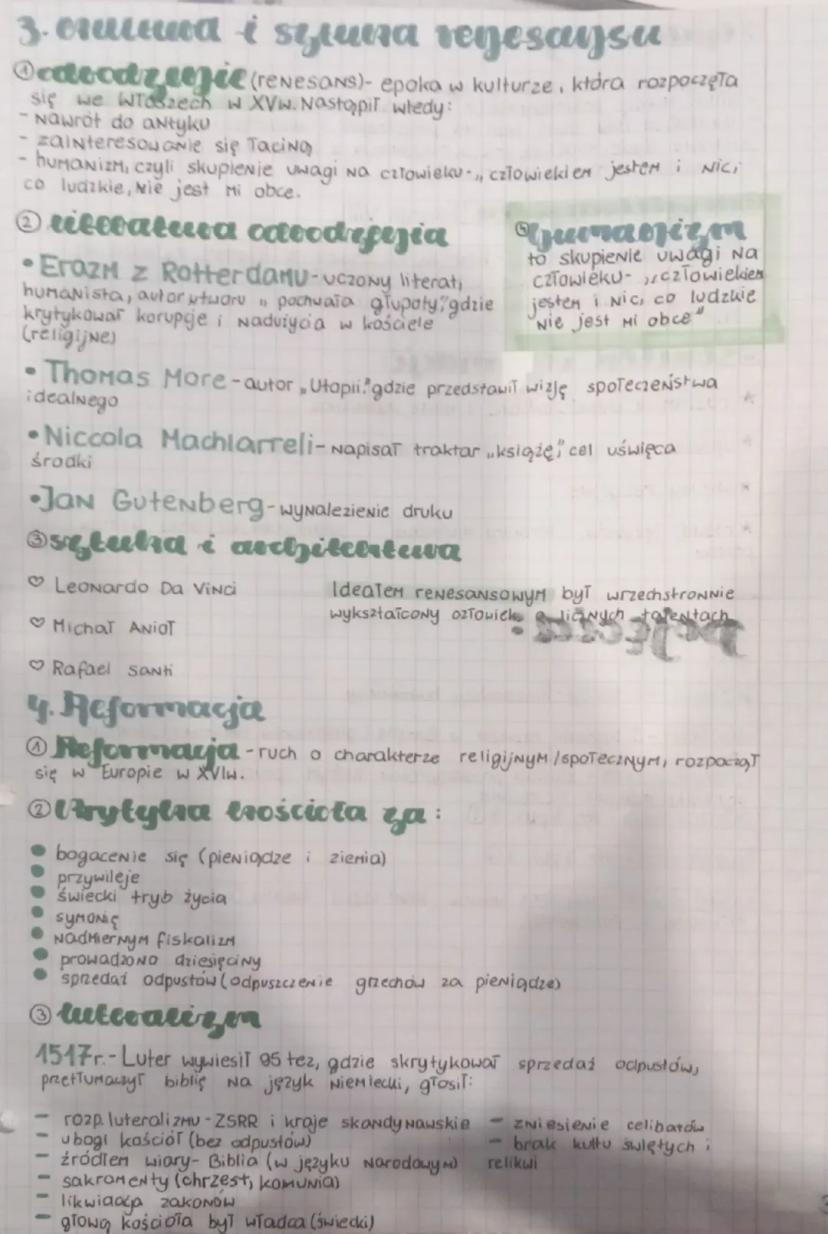 3. i sztuka renesansu
① odrodzenie (renesans)- epoka w kulturze, która rozpoczęła
się we Włoszech w XVw. Nastąpił wtedy:
- nawrót do antyku
- zainteresowanie się łaciną
- humanizm, czyli skupienie uwagi na człowieku-,, człowiekiem jestem i nic,
co ludzkie, nie jest mi obce.
② literatura odrodzenia
• Erazm z Rotterdamu-uczony literat,
humanista, autor utworu ,, pochwała głupoty," gdzie
krytykował korupcje i nadużycia w kościele
(religijne)
Humanizm
to skupienie uwagi na
człowieku- ,,człowiekiem
jestem i nic, co ludzkie
nie jest mi obce"
• Thomas More-autor ,,Utopii" gdzie przedstawił wizję społeczeństwa
idealnego
• Niccola Machiarreli-napisał traktar ,,książę," cel uświęca
środki
• Jan Gutenberg-wynalezienie druku
③ sztuka i architektura
♡ Leonardo Da Vinci
♡ Michał Anioł
♡ Rafael Santi
Ideałem renesansowym był wrzechstronnie
wykształcony człowiek o licznych talentach
4. Reformacja
① Reformacja-ruch o charakterze religijnym/społecznym, rozpoczął
się w Europie w XVIw.
② Krytyka kościoła za:
• bogacenie się (pieniądze i ziemia)
• przywileje
• świecki tryb życia
• symonię
• nadmiernym fiskalizm
• prowadzono dziesięciny
• sprzedaż odpustów (odpuszczenie grzechów za pieniądze)
③ luteralizm
1517r.- Luter wywiesił 95 tez, gdzie skrytykował sprzedaż odpustów,
przetłumaczył biblię na język niemiecki, głosił:
- rozp. luteralizmu-ZSRR i kraje skandynawskie
- ubogi kościół (bez odpustów)
- źródłem wiary- Biblia (w języku narodowym)
- sakramenty (chrzest, komunia)
- likwidacja zakonów
- głową kościoła był władca (świecki)
- zniesienie celibatów
- brak kultu świętych i
relikwi